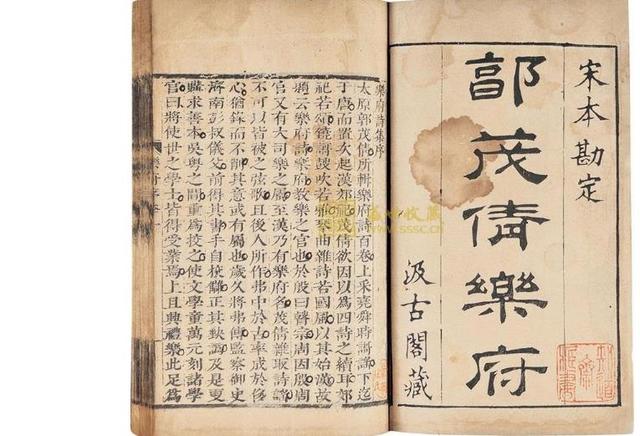 宋本勘定
郭茂倩樂府
汲古閣藏
樂府詩集序
太原郭茂倩所輯樂府詩百卷上采堯舜時謌謠下迄
于唐而置次起漢郊祀茂倩欲因以為四詩之續耳郊
祀若頌鐃謌鼓吹若雅琴曲雜詩若國風以其始漢故
題云樂府詩樂府教樂之官也於殷曰瞽宗周因殷周
官又有大司樂之屬至漢乃有樂府名茂倩雜取詩謠
不可以皆被之弦歌且後人所作弗中於古率成於侈
心猶錄而不削其意或有屬也歲久將弗傳監察御史
濟南彭叔儀父前得其書手自挍讎正其缺譌及是更
購求善本吳粵之間重為挍之使文學童萬元刻諸學
官曰將使世之學士皆得受業焉上且典禮樂此足爲
盛世收藏
sssc.cn